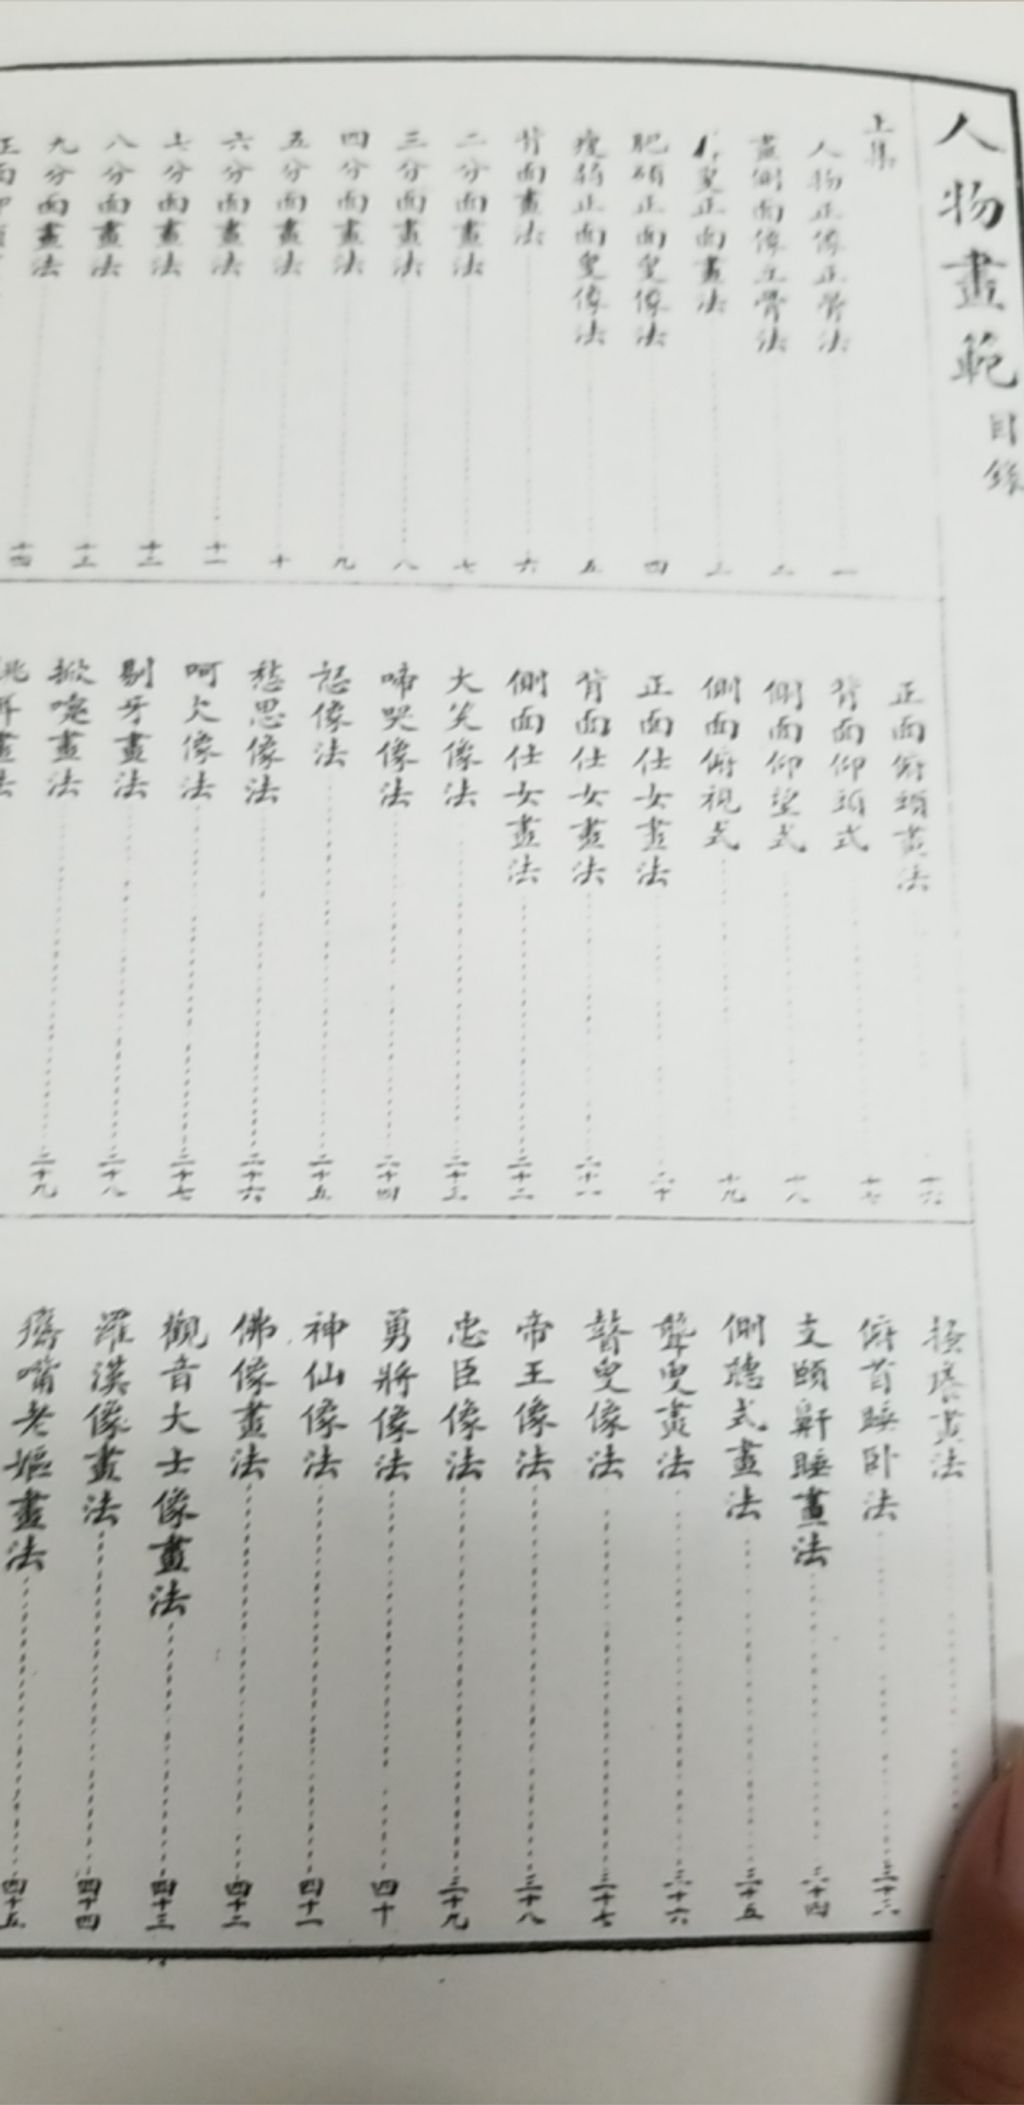 人物畫範目錄
上集
人物正像正骨法 一
畫側面像立骨法 二
叟正面畫法 三
肥碩正面叟像法 四
瘦弱正面叟像法 五
背面畫法 六
二分面畫法 七
三分面畫法 八
四分面畫法 九
五分面畫法 十
六分面畫法 十一
七分面畫法 十二
八分面畫法 十三
九分面畫法 十四
正面仰
正面俯頭畫法 十六
背面仰頭式 十七
側面仰望式 十八
側面俯視式 十九
正面仕女畫法 二十
背面仕女畫法 二十一
側面仕女畫法 二十二
大笑像法 二十三
啼哭像法 二十四
怒像法 二十五
愁思像法 二十六
呵欠像法 二十七
剔牙畫法 二十八
掀嚏畫法 二十九
畫法
搔癢畫法
俯首睡卧法 三十三
支頤鼾睡畫法 三十四
側聽式畫法 三十五
聾叟畫法 三十六
瞽叟像法 三十七
帝王像法 三十八
忠臣像法 三十九
勇將像法 四十
神仙像法 四十一
佛像畫法 四十二
觀音大士像畫法 四十三
羅漢像畫法 四十四
癟嘴老嫗畫法 四十五